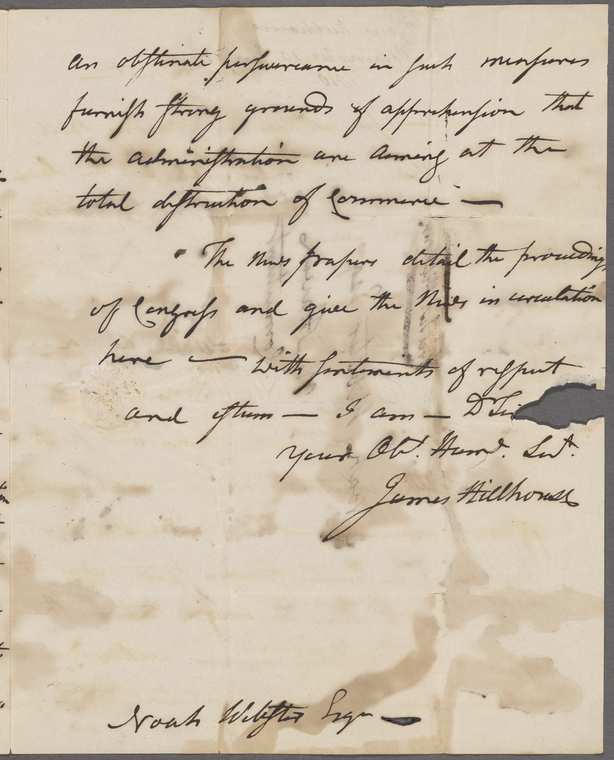 an obstinate perseverance in such measures
furnish strong grounds of apprehension that
the administration are aiming at the
total distruction of Commerce —
The News papers detail the proceedings
of Congress and give the News in circulation
here — with sentiments of respect
and esteem — I am — Dr Sir
your Obt. Huml. Sert.
James Hillhouse
Noah Webster Esqr —